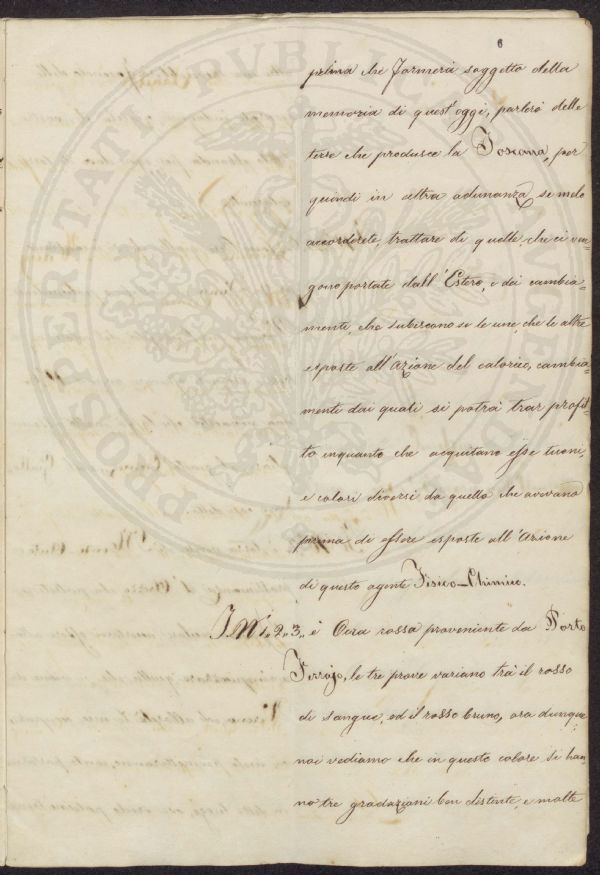 6
prima che formerà soggetto della
memoria di quest'oggi, parlerò delle
terre che produsce la Toscana, per
quindi in altra adunanza, se melo
accorderete, trattare di quelle, che ci ven=
gono portate dall'Estero, e dei cambia=
menti, che subiscono sì le une, che le altre
esposte all'azione del calorico, cambia=
menti dai quali si potrà trar profit=
to inquanto che acquitano esse tuoni,
e colori diversi da quello che avevano
prima di essere esposte all'azione
di questo agente Fisico-Chimico.
I Nⁱ 1. 2. 3. è Ocra rossa proveniente da Porto
Ferrajo, le tre prove variano trà il rosso
di sangue, ed il rosso bruno, ora dunque
noi vediamo che in questo colore si han=
no tre gradazioni ben distinte, e molte
PROSPERITATI PVBLICAE